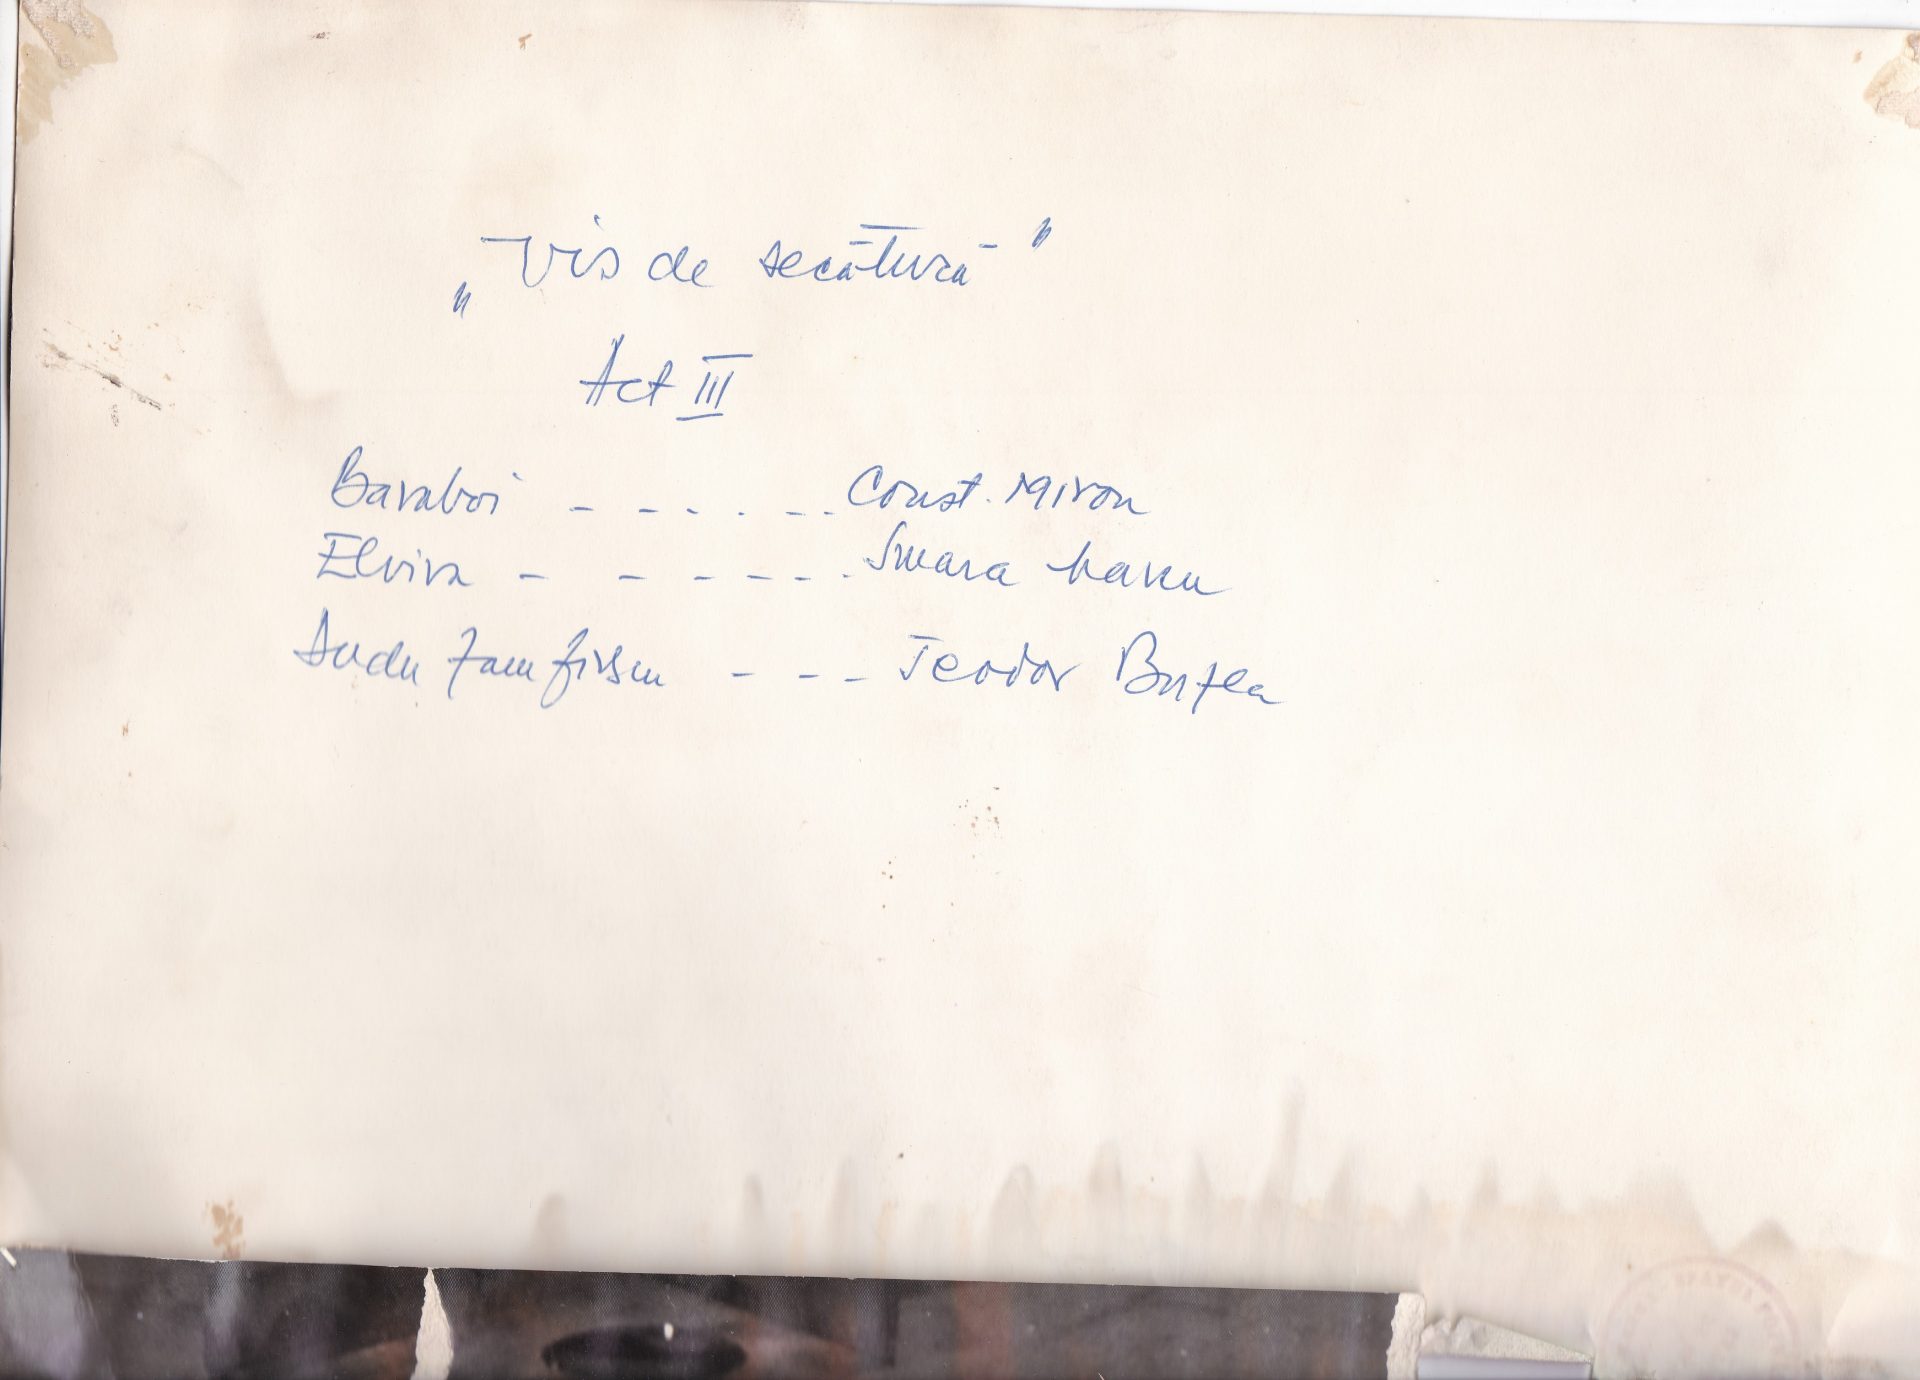 „Vis de secătură”
Act III
Baraboi - - - . - - . Const. Miron
Elvira - - - - - - . Smara
Zamfirescu - - - Teodor